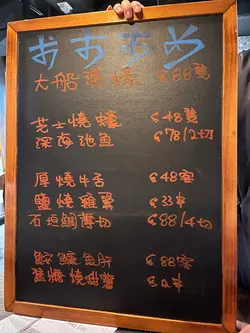 おすすめ
大船渡蠔 $88隻
芝士燒蠔 $48隻
深海池魚 $78/2切
厚燒牛舌 $48客
鹽燒雞 $33串
石垣鯛薄切 $88/4切
鮟鱇魚肝 $88客
糖燒甜薯